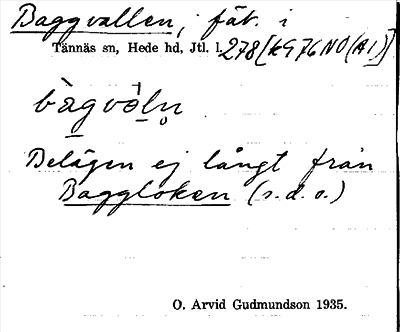 Baggvallen, fäb. i
Tännäs sn, Hede hd, Jtl. l. 278 [k976NO(A1)]
bàgvàlṇ
Belägen ej långt från
Baggloken (s.d.o.)
O. Arvid Gudmundson 1935.